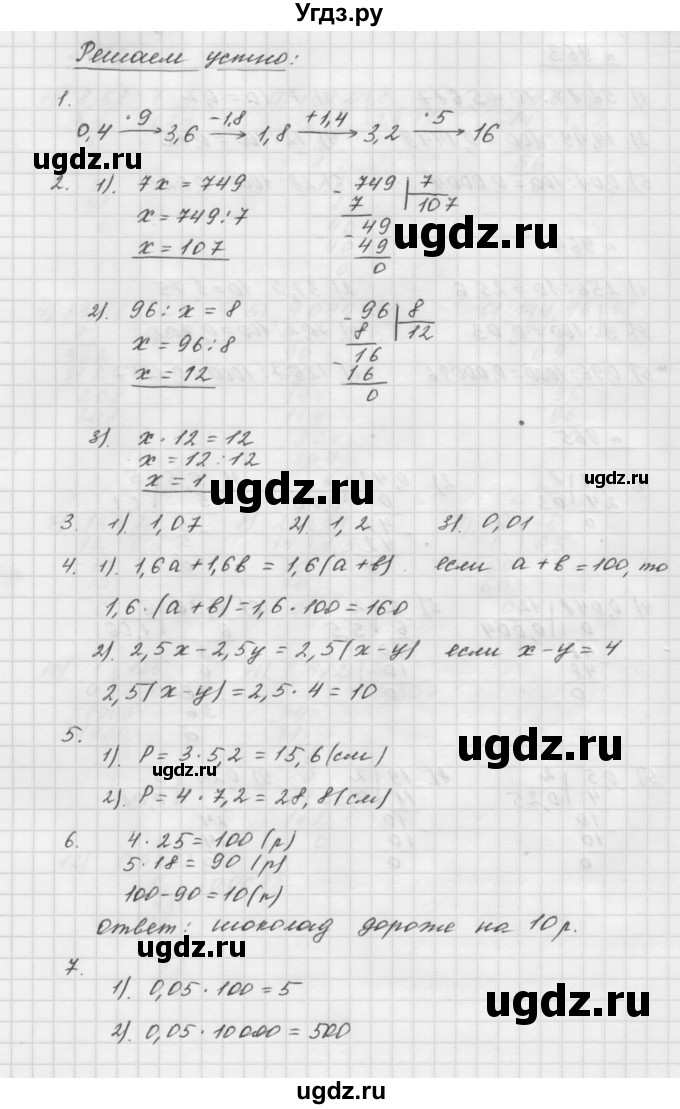 Угдз.ру
Решаем устно:
1.
0,4 —·9→ 3,6 —−1,8→ 1,8 —+1,4→ 3,2 —·5→ 16
ugdz.ru
2. 1). 7x = 749
x = 749:7
x = 107
- 749 | 7
7 107
- 49
49
0
ugdz.ru
2). 96 : x = 8
x = 96:8
x = 12
- 96 | 8
8 12
- 16
16
0
3). x · 12 = 12
x = 12 : 12
x = 1
ugdz.ru
ugdz.ru
3. 1). 1,07 2). 1,2 3). 0,01
4. 1). 1,6a + 1,6в = 1,6(a+в) если a + в = 100, то
1,6 · (a+в) = 1,6 · 100 = 160
2). 2,5x − 2,5y = 2,5(x−y) если x − y = 4
2,5(x−y) = 2,5 · 4 = 10
5.
1). P = 3 · 5,2 = 15,6 (см)
ugdz.ru
ugdz.ru
2). P = 4 · 7,2 = 28,8 (см)
6. 4 · 25 = 100 (р)
5 · 18 = 90 (р)
100 − 90 = 10 (р)
Ответ: шоколад дороже на 10 р.
ugdz.ru
7.
1). 0,05 · 100 = 5
2). 0,05 · 10000 = 500
ugdz.ru
ugdz.ru